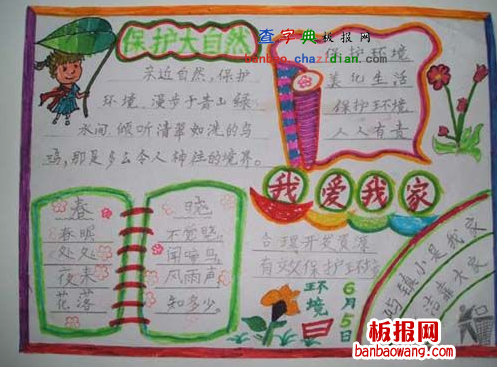 查字典板报网
banbao.chazidian.com
保护大自然
亲近自然,保护
环境。漫步于青山绿
水间,倾听清翠如洗的鸟
鸣,那是多么令人神往的境界。
保护环境
美化生活
保护环境
人人有责
我爱我家
春
春眠
处处
夜来
花落
晓
不觉晓,
闻啼鸟
风雨声
知多少。
合理开发资源
有效保护环境
环境日
6月5日
屿镇小是我家
洁靠大家
板报网
banbaowang.com